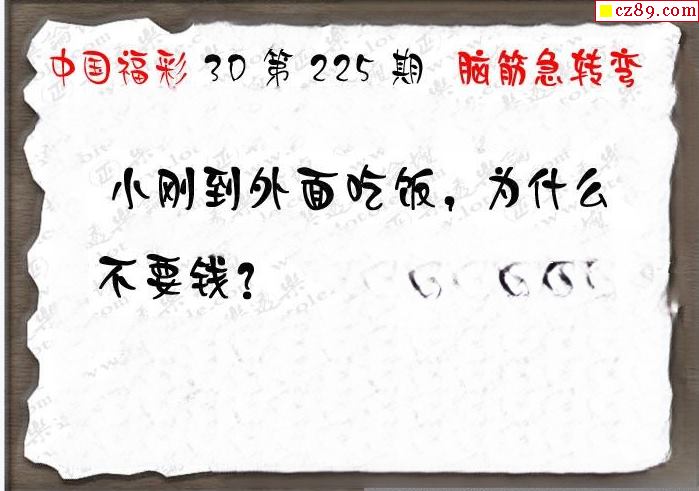 cz89.com
中国福彩 3D 第 225 期 脑筋急转弯
小刚到外面吃饭，为什么
不要钱？